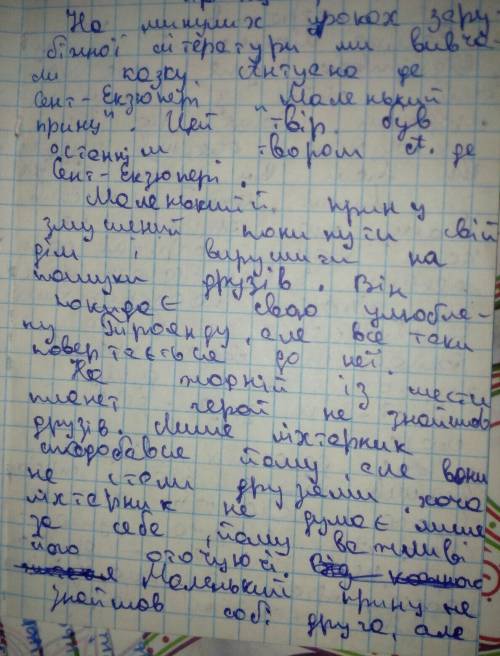 На минулих уроках зару
біжної літератури ми вивча
ли казку Антуана де
Сент-Екзюпері "Маленький
принц". Цей твір був
останнім твором А. де
Сент-Екзюпері.
Маленький принц
змушений покинути свій
дім і вирушити на
пошуки друзів. Він
покидає свою улюбле-
ну троянду, але все таки
повертається до неї.
На жодній із шести
планет герой не знайшов
друзів. Лише ліхтарник
сподобався йому, але вони
не стали друзями, хоча
ліхтарник не думає лише
за себе, йому важливі
його оточуючі.
Маленький принц не
знайшов собі друга, але